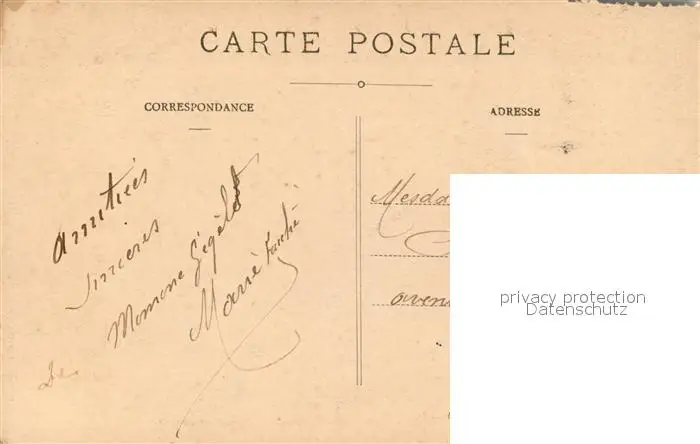 CARTE POSTALE
CORRESPONDANCE
ADRESSE
amitiés
sincères
De
Momone Gégêle
Marie
Mesda
aven
privacy protection
Datenschutz